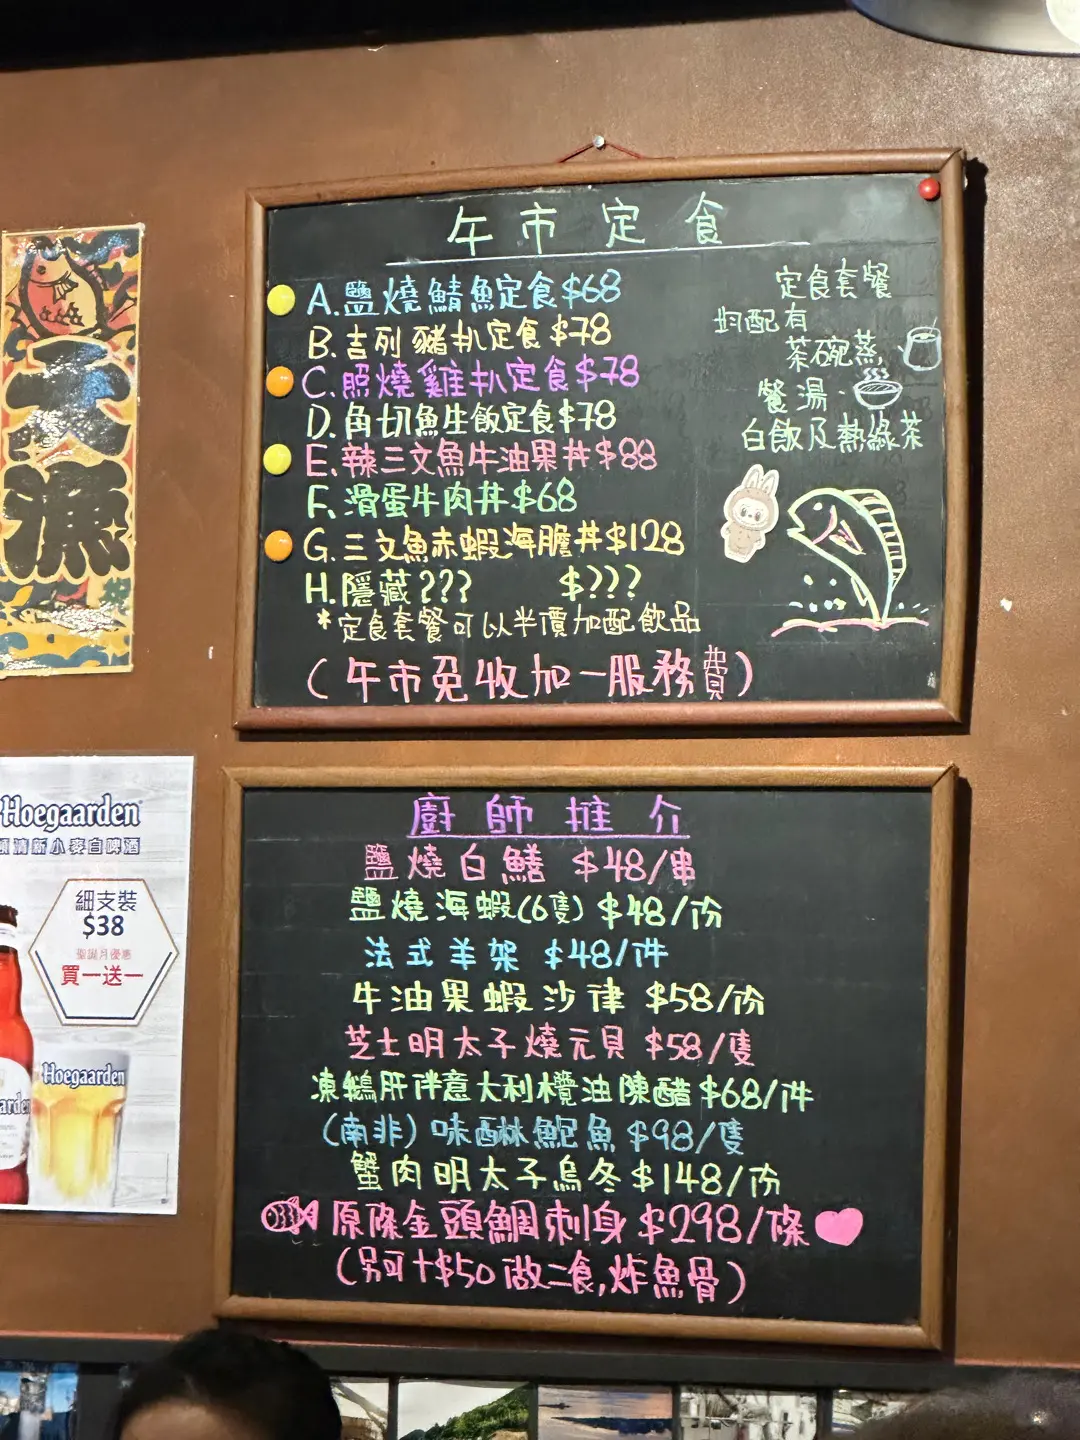 午市定食
A.鹽燒鯖魚定食$68
B.吉列豬扒定食$78
C.照燒雞扒定食$78
D.角切魚生飯定食$78
E.辣三文魚牛油果丼$88
F.滑蛋牛肉丼$68
G.三文魚赤蝦海膽丼$128
H.隱藏??? $???
*定食套餐可以半價加配飲品
(午市免收加一服務費)
定食套餐
均配有
茶碗蒸,
餐湯.
白飯及熱綠茶
大漁
Hoegaarden
清新小麥白啤酒
細支裝
$38
聖誕月優惠
買一送一
Hoegaarden
廚師推介
鹽燒白鱔 $48/串
鹽燒海蝦(6隻) $48/份
法式羊架 $48/件
牛油果蝦沙律 $58/份
芝士明太子燒元貝 $58/隻
凍鵝肝伴意大利欖油陳醋 $68/件
(南非)味醂鮑魚 $98/隻
蟹肉明太子烏冬 $148/份
原條金頭鯛刺身 $298/條
(另可+$50做二食,炸魚骨)